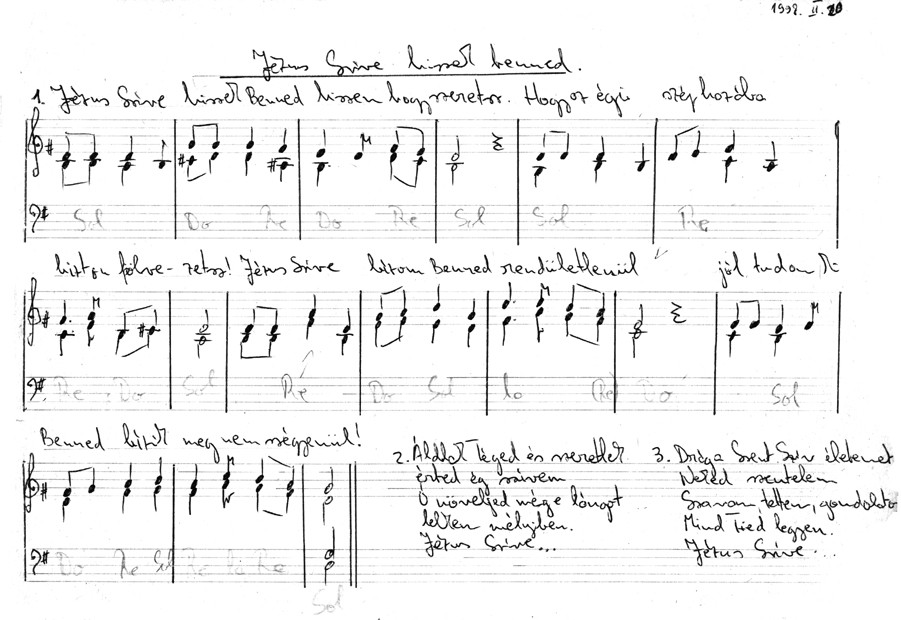 1998. II. 20
Jézus Szive hiszek benned.
1. Jézus Szive hiszek Benned hiszem hogy szeretsz. Hogyor égi szép hazába
Sol Do Re Do Re Sol Sol Re
biztos fölve- zetsz! Jézus Szive bizom Benned rendületlenül jól tudom ki
Re Do Sol Re Do Sol la (Re) Do Sol
Benned bízik meg nem szégyenül!
Do Re Sol Re la Re
Sol
2. Áldlak Téged és szeretlek
érted ég szívem
Ó növeljed még e lángot
lelkem mélyiben.
Jézus Szive...
3. Drága Szent Sziv életemet
Néked szentelem
Szavam, tettem, gondolato
Mind Tied legyen.
Jézus Szive...